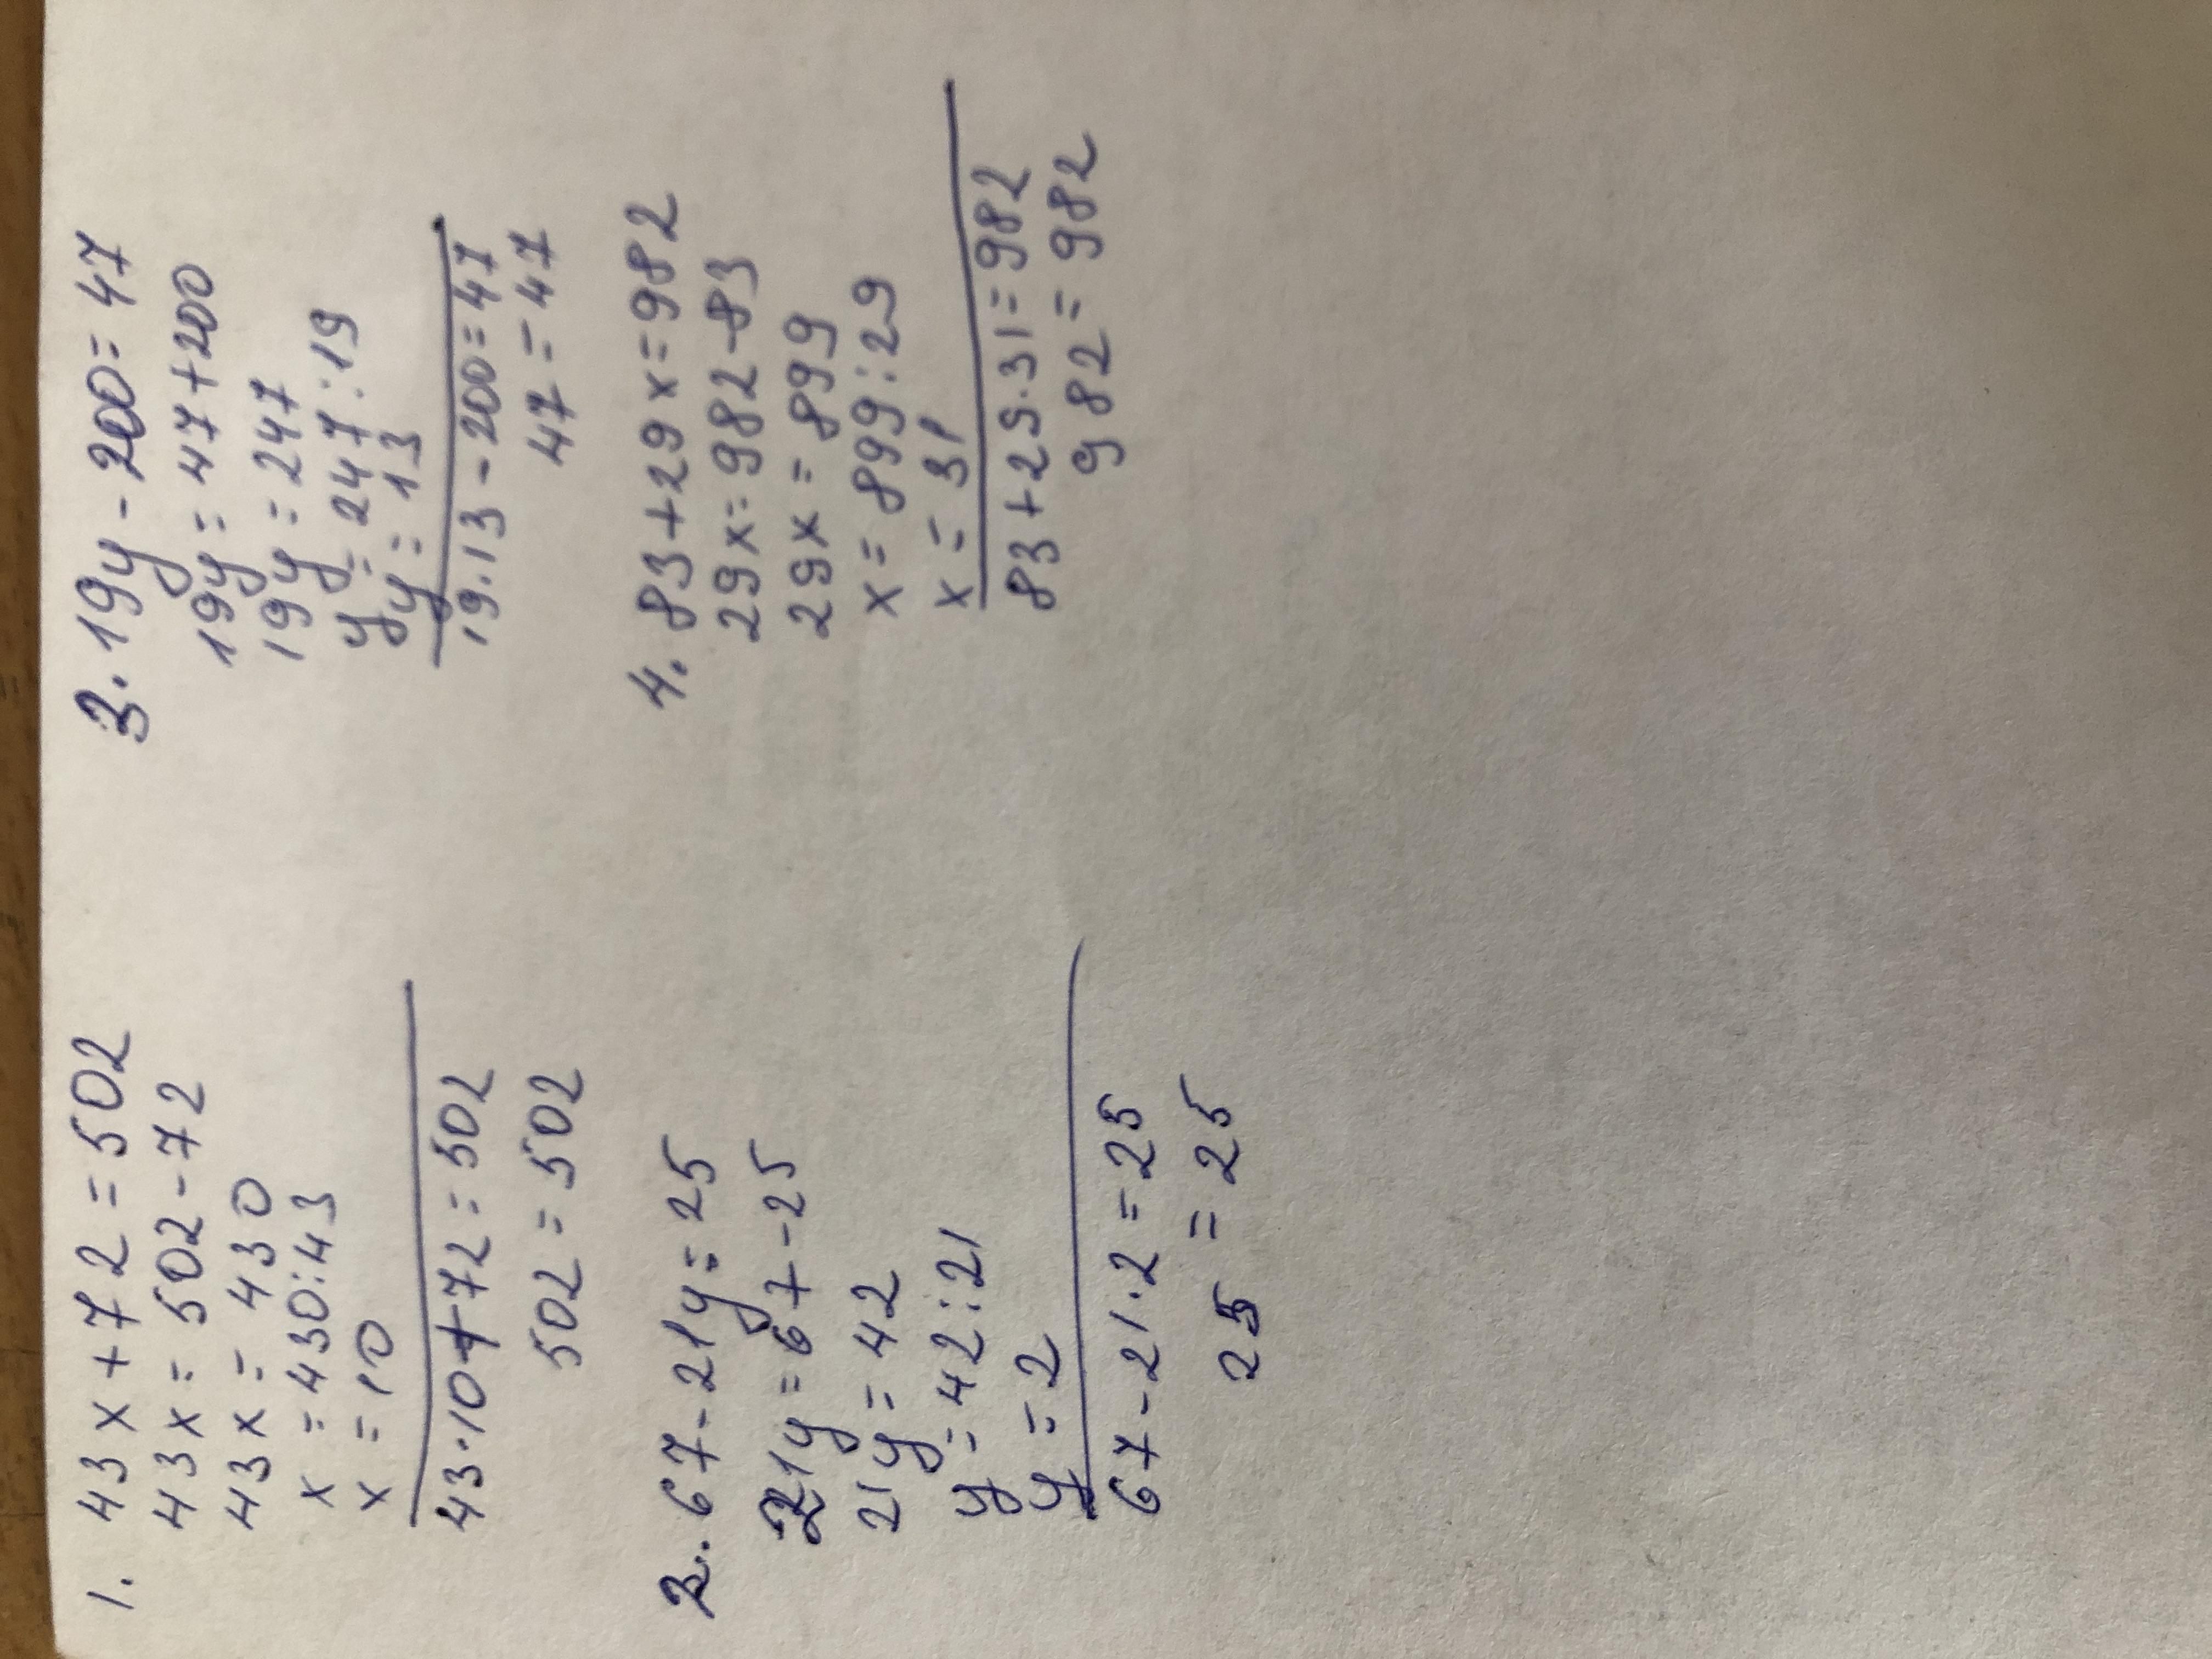 1. 43x+72=502
43x=502-72
43x=430
x=430:43
x=10
43·10+72=502
502=502
2. 67-21y=25
21y=67-25
21y=42
y=42:21
y=2
67-21·2=25
25=25
3. 19y-200=47
19y=47+200
19y=247
y=247:19
y=13
19·13-200=47
47=47
4. 83+29x=982
29x=982-83
29x=899
x=899:29
x=31
83+29·31=982
982=982